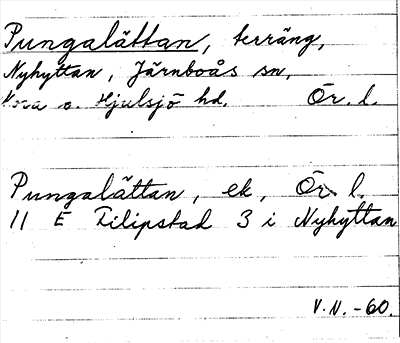 Pungalättan, terräng,
Nyhyttan, Järnboås sn,
Nora o. Hjulsjö hd. Ör. l.
Pungalättan, ek, Ör. l.
11 E Filipstad 3 i Nyhyttan
V.N. -60.